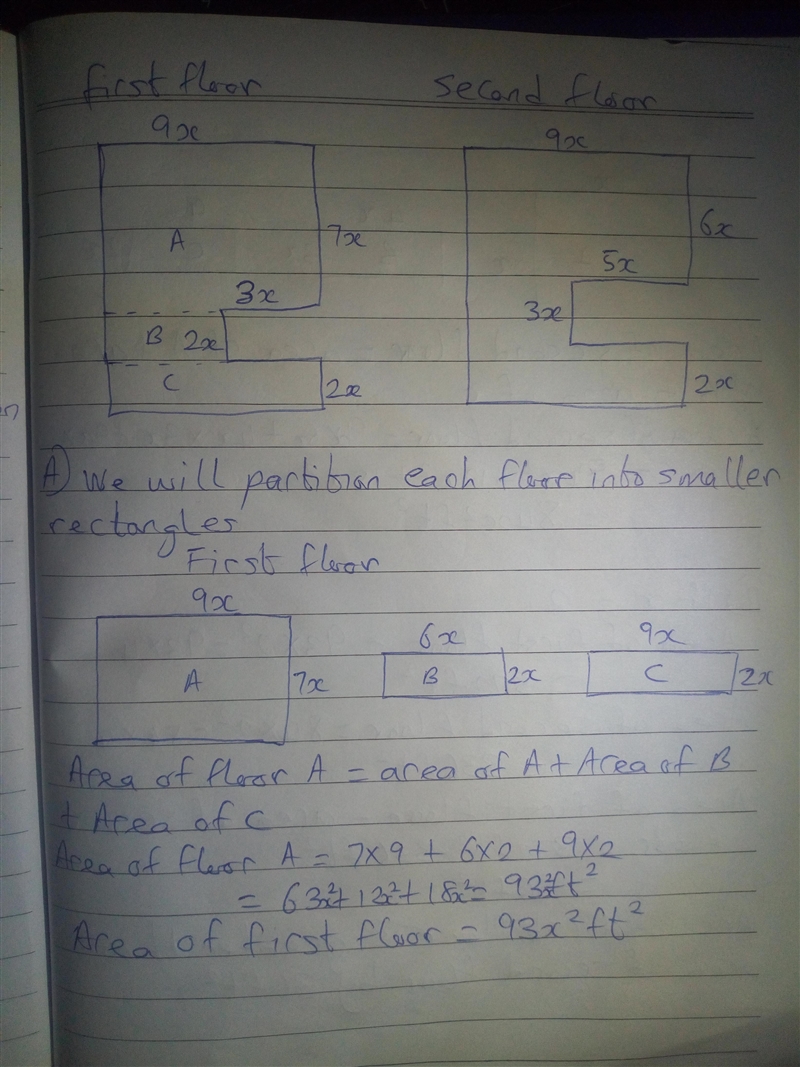 first floor second floor
9x 9x
A 7x 6x
3x 5x
B 2x 3x
C 2x 2x
A) We will partition each floor into smaller
rectangles
First floor
9x 6x 9x
A 7x B 2x C 2x
Area of floor A = area of A + Area of B
+ Area of C
Area of floor A = 7x9 + 6x2 + 9x2
= 63x²+12x²+18x²= 93x²ft²
Area of first floor = 93x²ft²